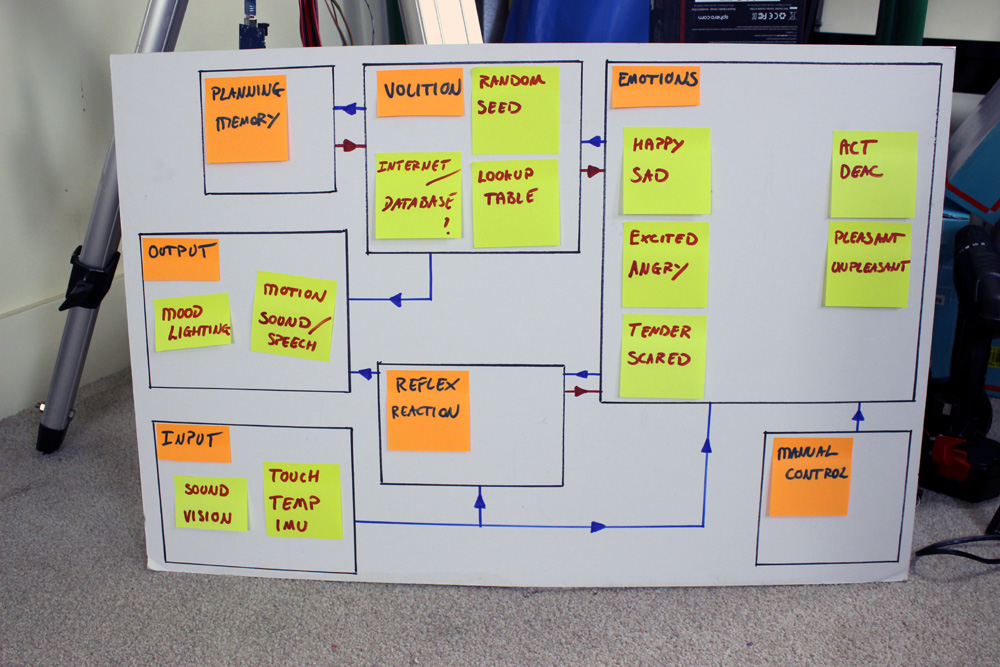 sphero.com
PLANNING
MEMORY
VOLITION
RANDOM
SEED
INTERNET
DATABASE
?
LOOKUP
TABLE
EMOTIONS
HAPPY
SAD
EXCITED
ANGRY
TENDER
SCARED
ACT
DEAC
PLEASANT
UNPLEASANT
OUTPUT
MOOD
LIGHTING
MOTION
SOUND/
SPEECH
REFLEX
REACTION
INPUT
SOUND
VISION
TOUCH
TEMP
IMU
MANUAL
CONTROL